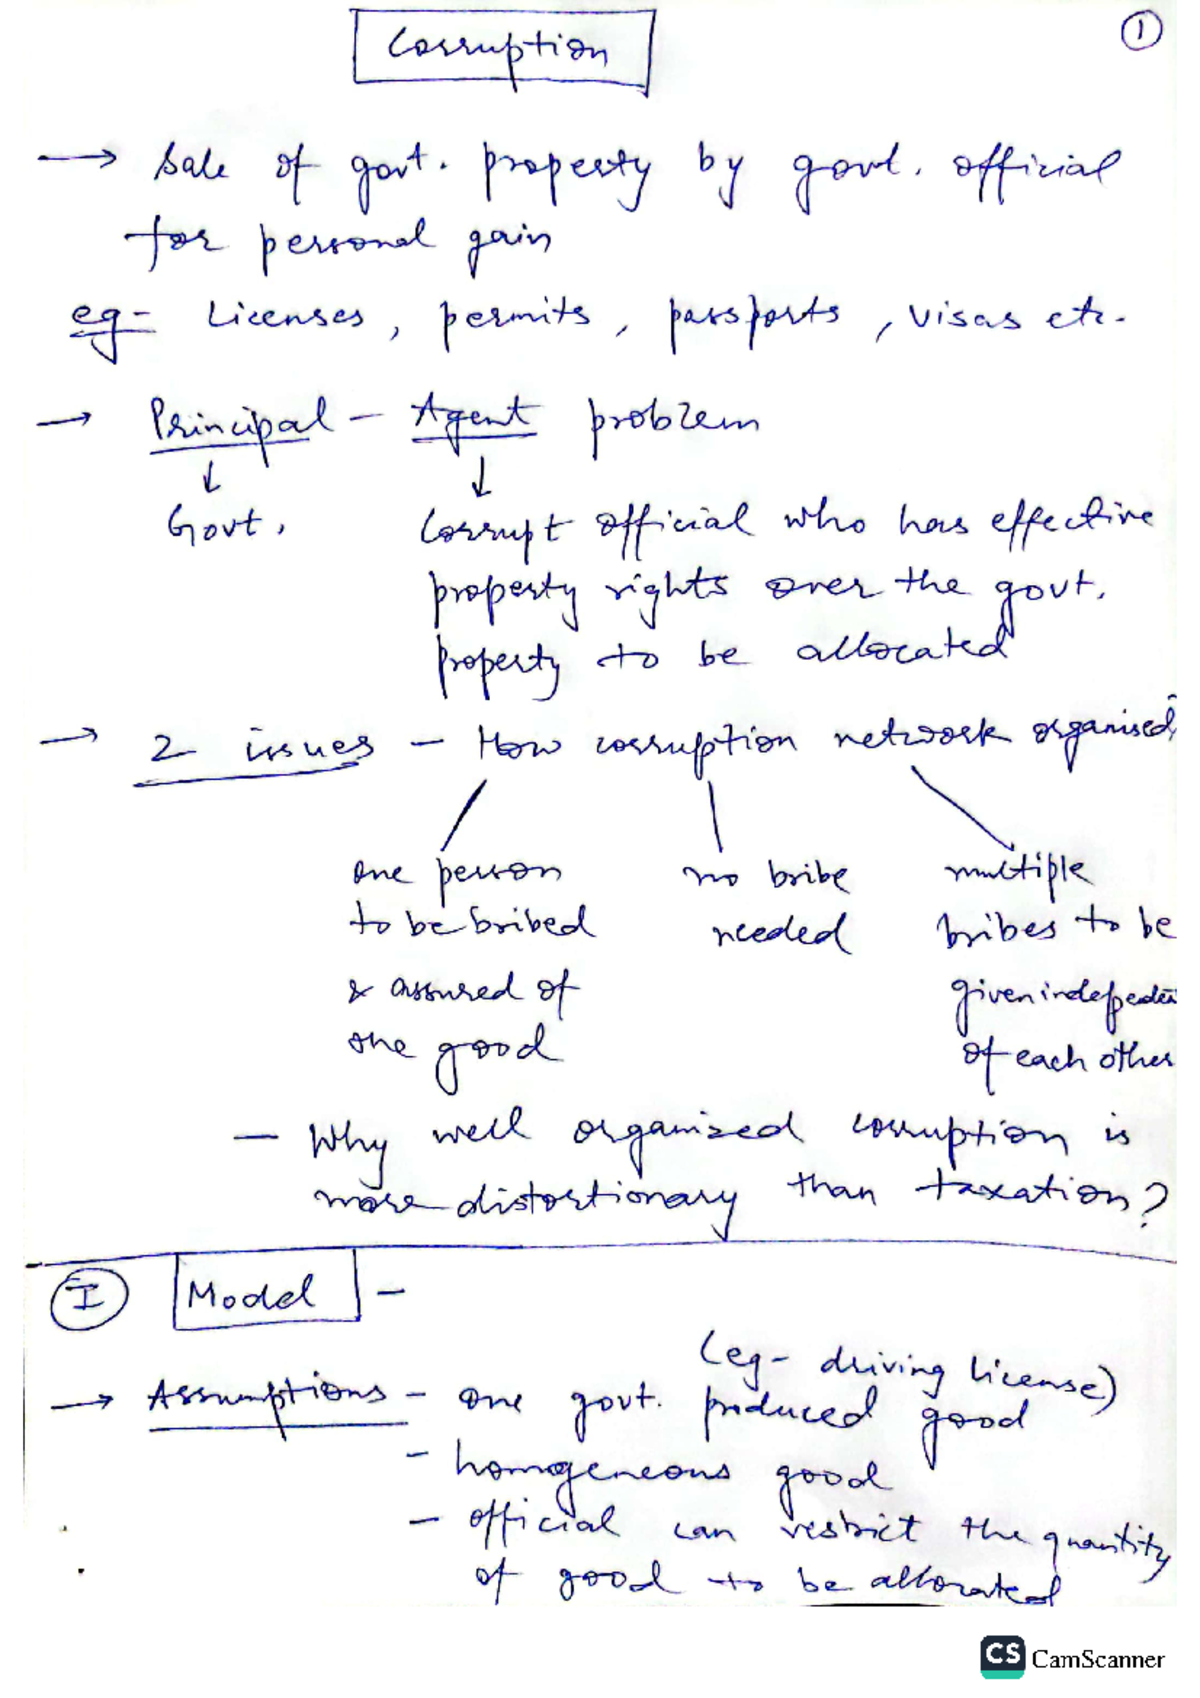 Corruption
①
→ Sale of govt. property by govt. official
for personal gain
eg- Licenses, permits, passports, visas etc.
→ Principal - Agent problem
↓ ↓
Govt. Corrupt official who has effective
property rights over the govt.
property to be allocated
→ 2 issues - How corruption network organised,
one person no bribe multiple
to be bribed needed bribes to be
& assured of given indepedet
one good of each other
- Why well organized corruption is
more distortionary than taxation?
I Model -
(eg- driving license)
→ Assumptions - one govt. produced good
- homogeneous good
- official can restrict the quantity
of good to be allocated
CS CamScanner